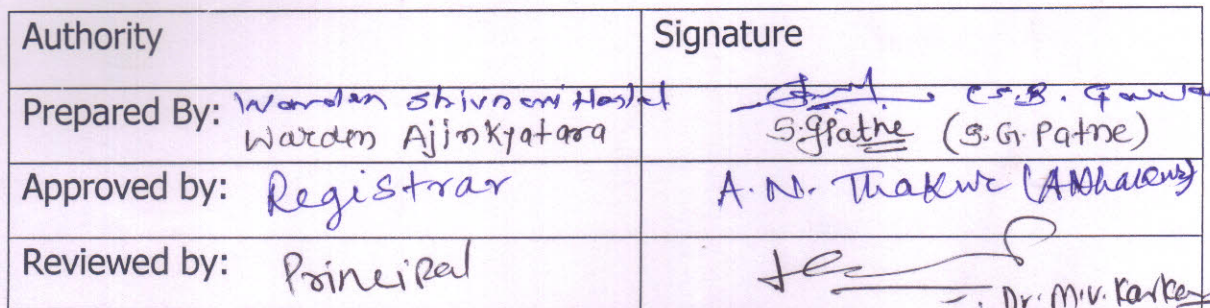 Authority Signature
Prepared By: Warden Shivneri Hostel (S.B.
Warden Ajinkyatara S.G.Patne (S.G. Patne)
Approved by: Registrar A. N. Thakur (ANThakur)
Reviewed by: Principal
Dr. M.V.